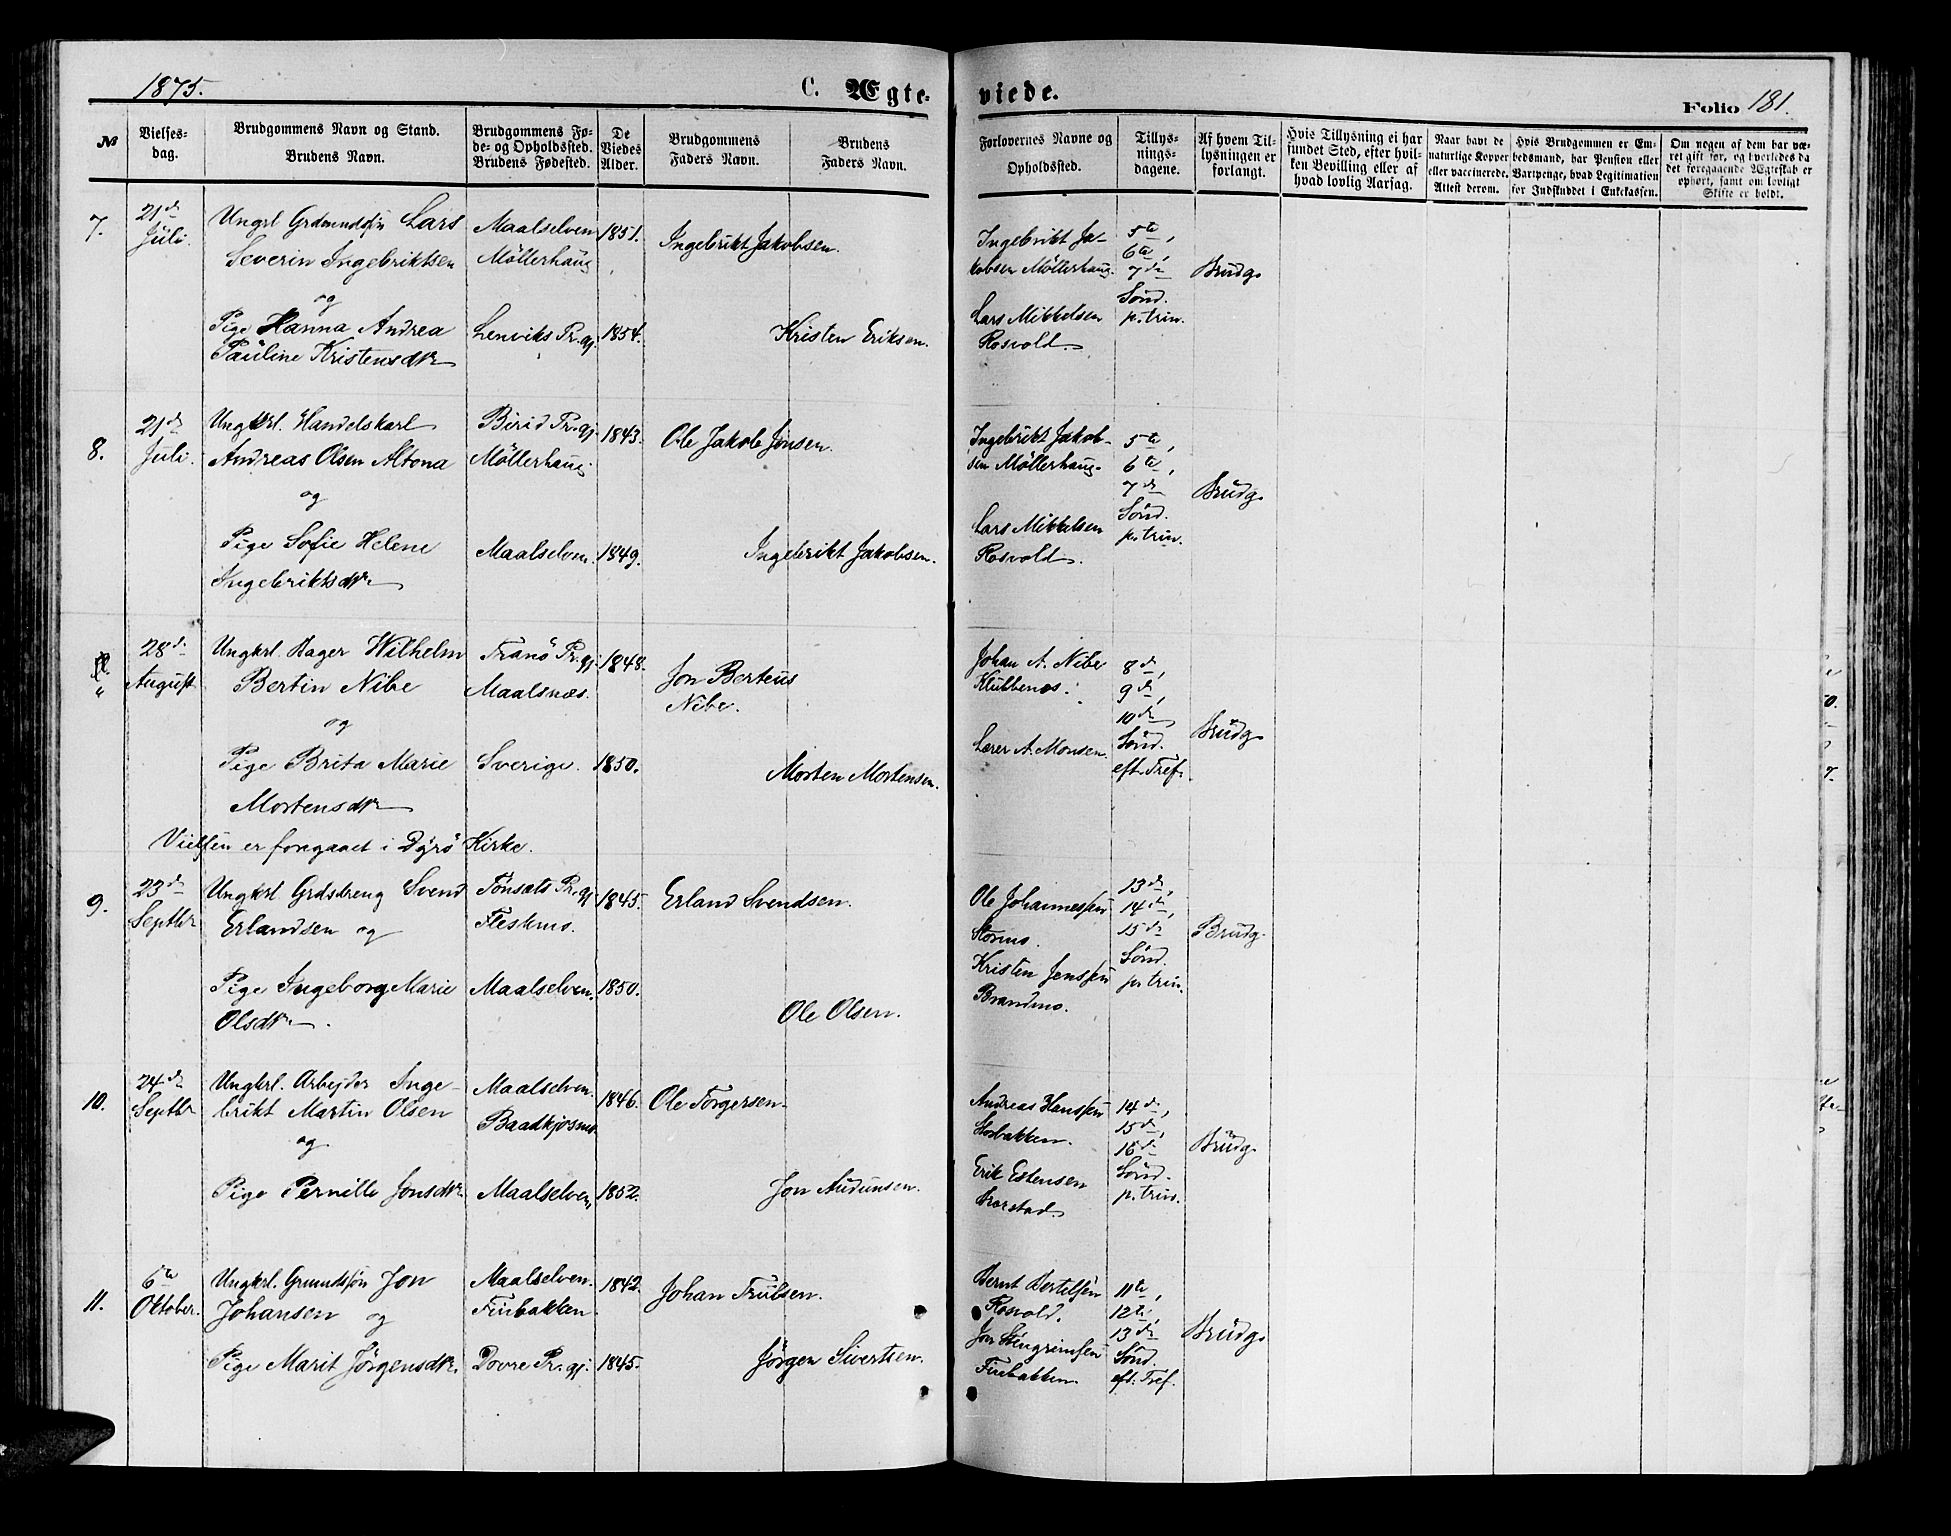 1875.
C. Ægte-
viede.
Folio 181.
№
Vielses-
dag.
Brudgommens Navn og Stand.
Brudens Navn.
Brudgommens Fø-
de- og Opholdssted.
Brudens Fødested.
De
Viedes
Alder.
Brudgommens
Faders Navn.
Brudens
Faders Navn.
Forlovernes Navne og
Opholdssted.
Tillys-
nings-
dagene.
Af hvem Til-
lysningen er
forlangt.
Hvis Tillysning ei har
fundet Sted, efter hvil-
ken Bevilling eller af
hvad lovlig Aarsag.
Naar havt de
naturlige Kopper
eller vaccinerede.
Attest derom.
Hvis Brudgommen er Em-
bedsmand, har Pension eller
Vartpenge, hvad Legitimation
for Indskuddet i Enkekassen.
Om nogen af dem har væ-
ret gift før, og hvorledes da
det foregaaende Ægteskab er
ophørt, samt om lovligt
Skifte er holdt.
7.
21de
Juli
Ungrl Grdmundsøn Lars
Severin Ingebriktsen
og
Pige Hanna Andrea
Pauline Kristensdtr
Maalselven
Möllerhaug
Lenviks Pr.gj.
1851.
1854.
Ingebrikt Jakobsen.
Kristen Eriksen.
Ingebrikt Ja-
kobsen Möllerhaug.
Lars Mikkelsen
Rosvold.
5te,
6te,
7de
Sönd.
p. trin.
Brudg.
8.
21de
Juli.
Ungkrl. Handelskarl
Andreas Olsen Altona
og
Pige Sofie Helene
Ingebriktsdtr.
Birid Pr.gj.
Möllerhaug
Maalselven.
1843.
1849.
Ole Jakob Jonsen.
Ingebrikt Jakobsen.
Ingebrikt Jakob-
sen Möllerhaug.
Lars Mikkelsen
Rosvold.
5te,
6te,
7de
Sönd.
p. trin.
Brudg.
"
28de
August
Ungkrl. Bager Wilhelm
Bertin Nibe
og
Pige Brita Marie
Mortensdtr
Tranö Pr.gj.
Maalsnæs.
Sverige.
1848.
1850.
Jon Berteus
Nibe.
Morten Mortensen.
Johan A. Nibe
Klubbenæs.
Lærer A. Monsen.
8de,
9de,
10de
Sönd.
eft. Tref.
Brudg.
Vielsen er foregaaet i Dyrö Kirke.
9.
23de
Septbr
Ungkrl. Grdsdreng Svend
Erlandsen og
Pige Ingeborg Marie
Olsdtr.
Tönsets Pr.gj.
Fleskmo.
Maalselven.
1845.
1850.
Erland Svendsen.
Ole Olsen.
Ole Johannessen
Stormo.
Kristen Jenssen
Brandmo.
13de,
14de,
15de
Sönd.
p. trin.
Brudg.
10.
24de
Septbr
Ungkrl. Arbejder Inge-
brikt Martin Olsen
og
Pige Pernille Jonsdtr.
Maalselven.
Baadkjösmo.
Maalselven,
1846.
1852.
Ole Torgersen.
Jon Audunsen.
Andreas Hanssen
Storbakken.
Erik Estensen
14de,
15de,
16de
Sönd.
p. trin.
Brudg.
11.
6te
Oktober.
Ungkrl. Grmundsøn Jon
Johansen og
Pige Marit Jörgensdtr.
Maalselven.
Finbakken.
Dovre Pr.gj.
1842.
1845.
Johan Trulsen.
Jörgen Sivertsen.
Bernt Bertilsen
Rosvold.
Jon Stengrimsen
Finbakken.
11te,
12te,
13de
Sönd.
eft. Tref.
Brudg.